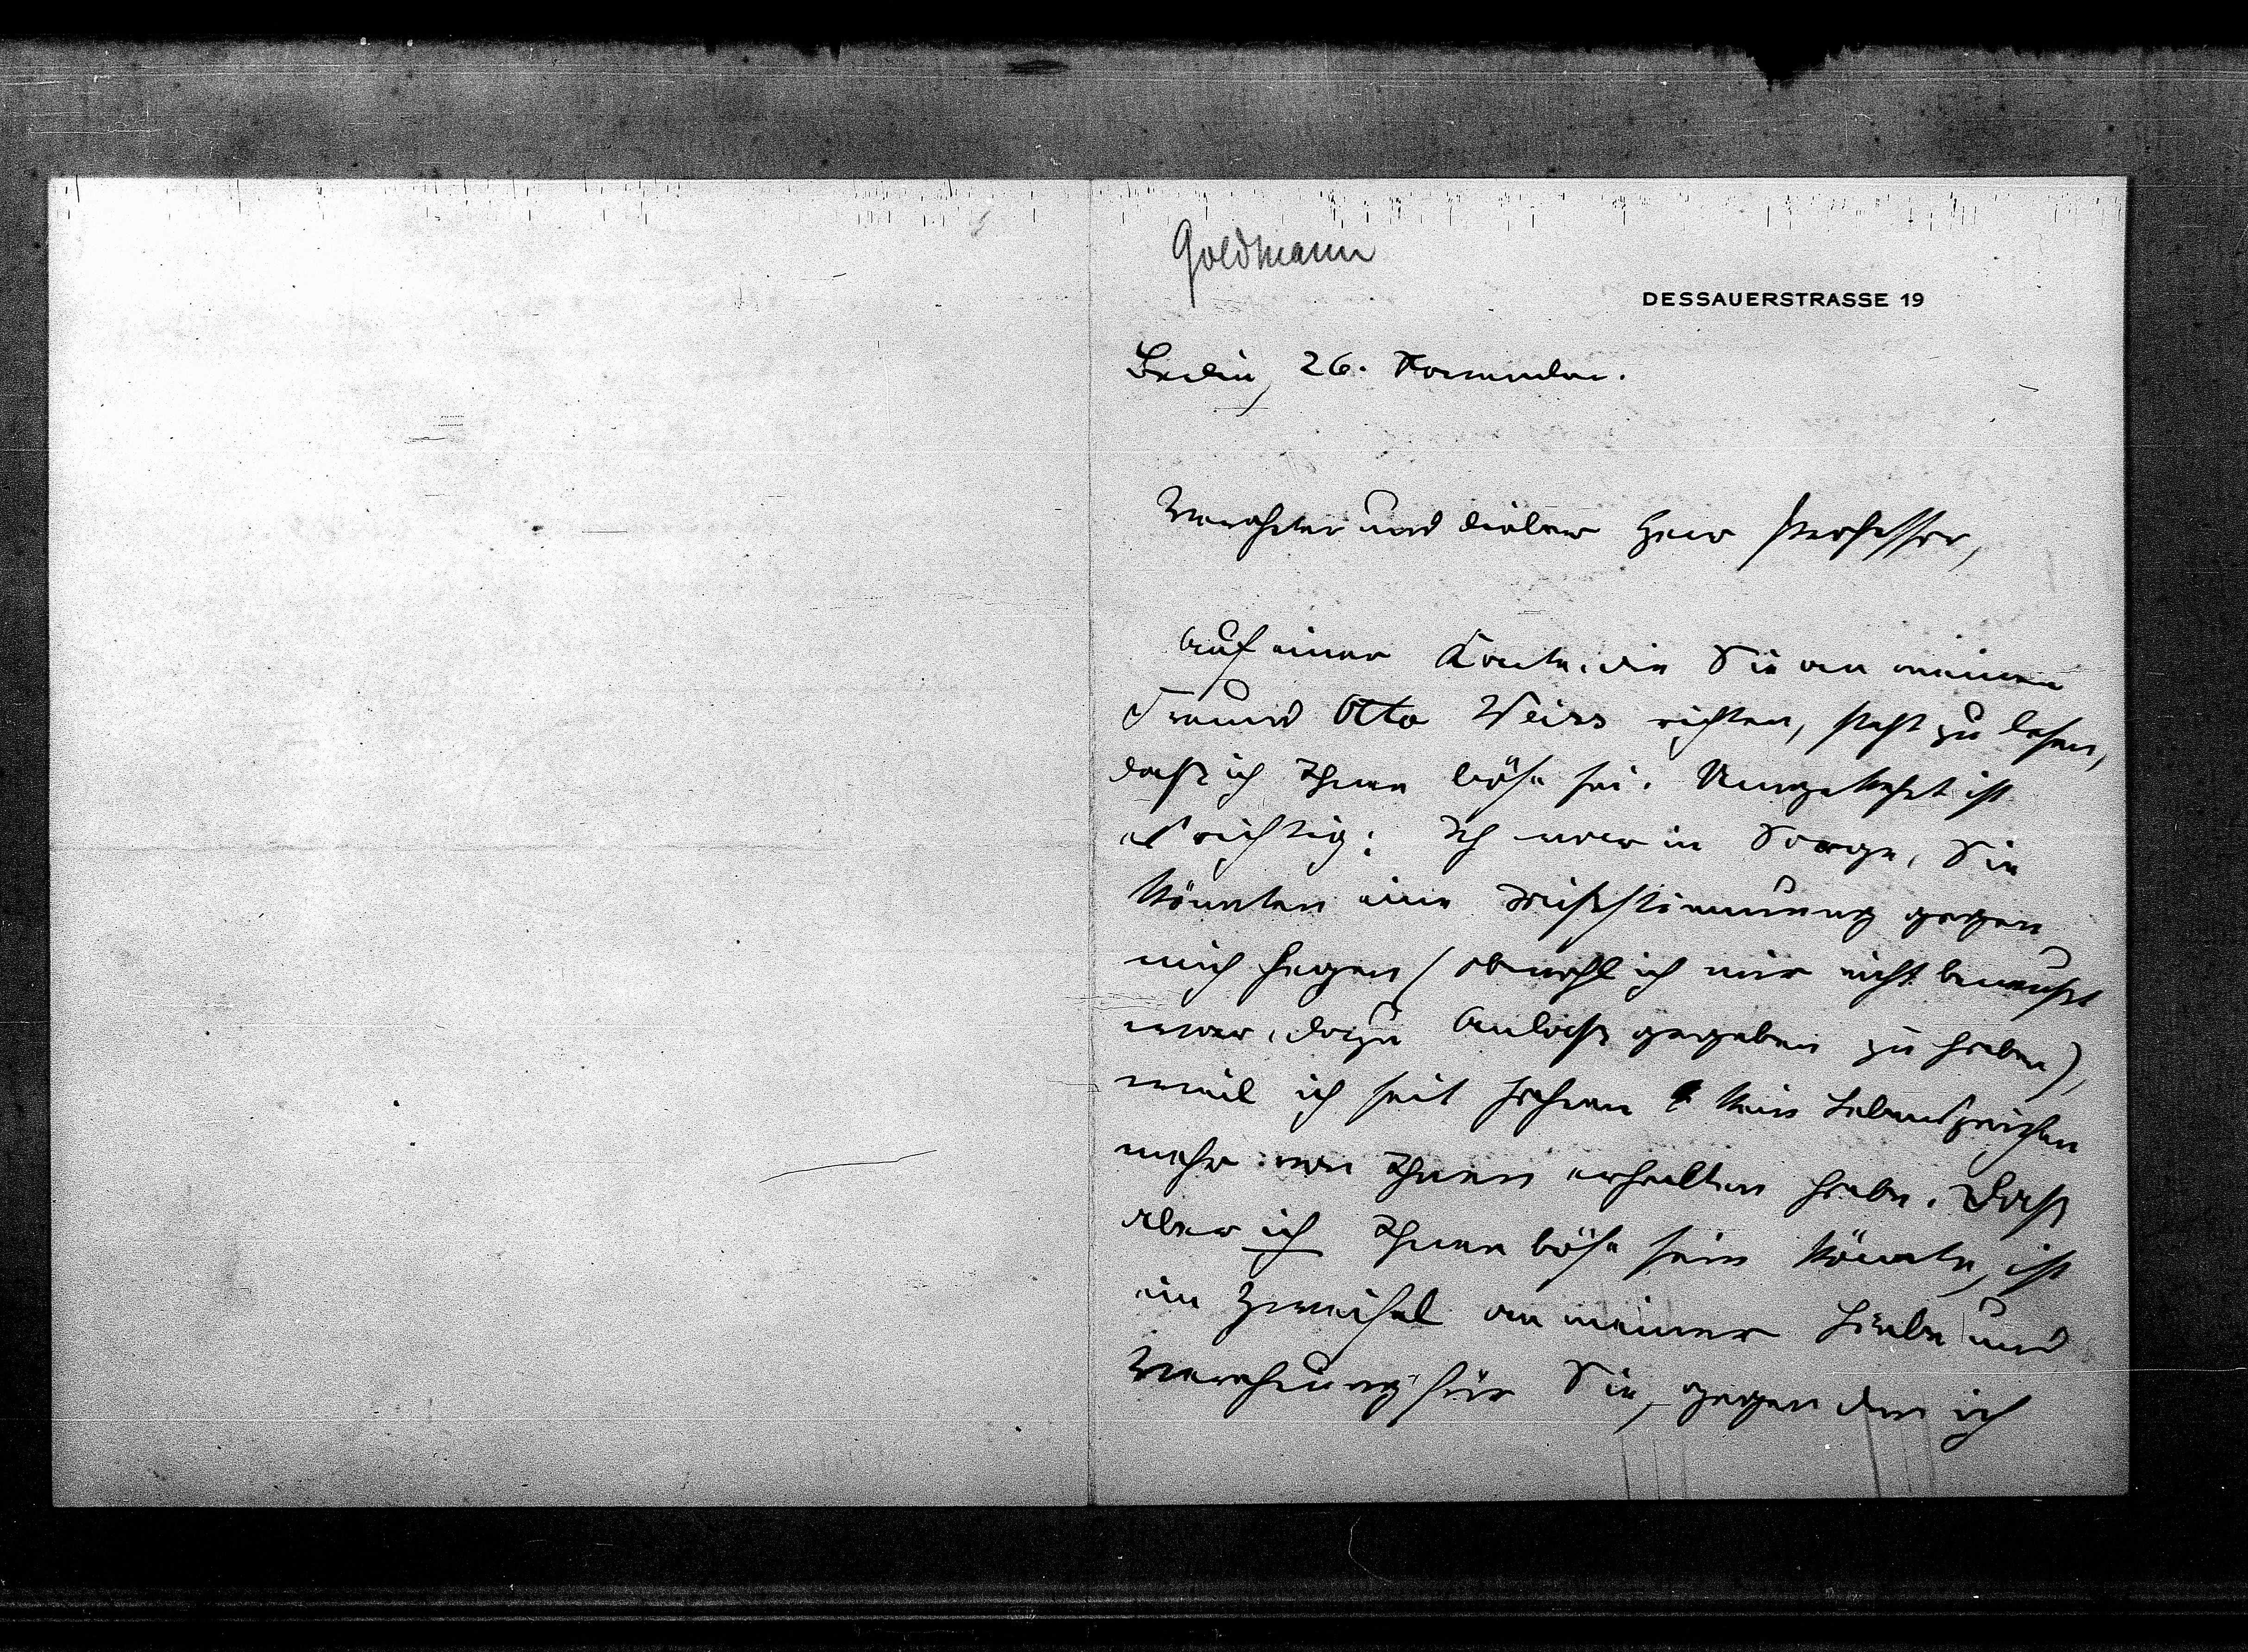 Goldmann
DESSAUERSTRASSE 19
Berlin, 26. November.
Verehrter und lieber Herr Professor,
Auf einer Karte, die Sie an meinen
Freund Otto Weiss richten, steht zu lesen,
daß ich Ihnen böse sei. Umgekehrt ist
es richtig: Ich war in Sorge, Sie
könnten eine Mißstimmung gegen
mich hegen (obwohl ich mir nicht bewußt
war, dazu Anlaß gegeben zu haben),
weil ich seit Jahren kein Lebenszeichen
mehr von Ihnen erhalten habe. Daß
aber ich Ihnen böse sein könnte, ist
ein Zweifel an meiner Liebe und
Verehrung für Sie, gegen den ich